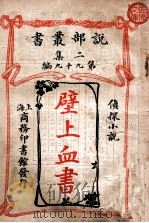 說部叢書
二集
第九十九編
偵探小說
壁上血書
上海商務印書館發行